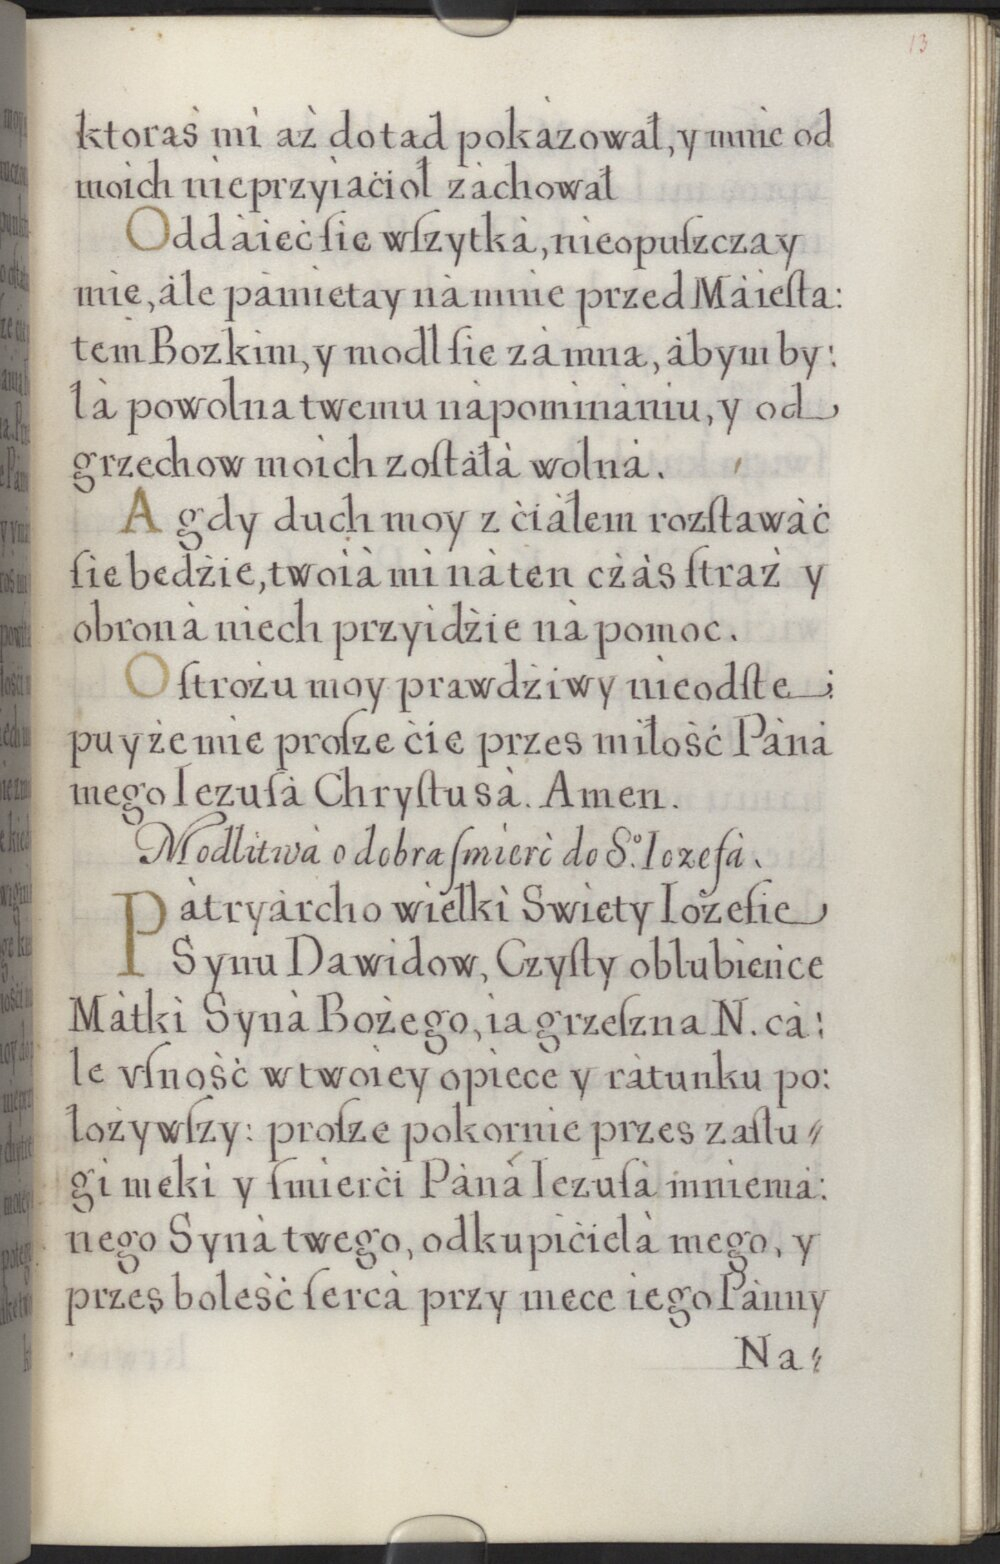 13
ktoraś mi aż dotad pokàzował, y mnie od
moich nieprzyiaćioł zàchował
Oddàieć ſie wſzytkà, nieopuſzczay
mie, àle pàmietay nà mnie przed Màieſta:
tem Bozkim, y modl ſie zà mną, àbym by:
łà powolna twemu nàpominàniu, y od
grzechow moich zoſtàłà wolnà.
A gdy duch moy z ćiàłem rozſtawàć
ſie bedźie, twoià mi nà ten czàs ſtraż y
obronà niech przyidźie nà pomoc.
O ſtrożu moy prawdźiwy nieodſte:
puyże mie proſze ćie przes miłość Pànà
mego Iezuſà Chryſtusà. Amen.
Modlitwà o dobra ſmierć do S.º Iozefà.
Pàtryàrcho wielki Swiety Iożefie
Synu Dawidow, Czyſty oblubieńce
Màtki Synà Bożego, ia grzeſzna N. cà:
le vſność w twoiey opiece y ràtunku po:
łożywſzy: proſze pokornie przes zaſłu:
gi meki y ſmierći Pànà Iezuſà mniemà:
nego Synà twego, odkupićielà mego, y
przes boleść ſercà przy mece iego Pànny
Na: